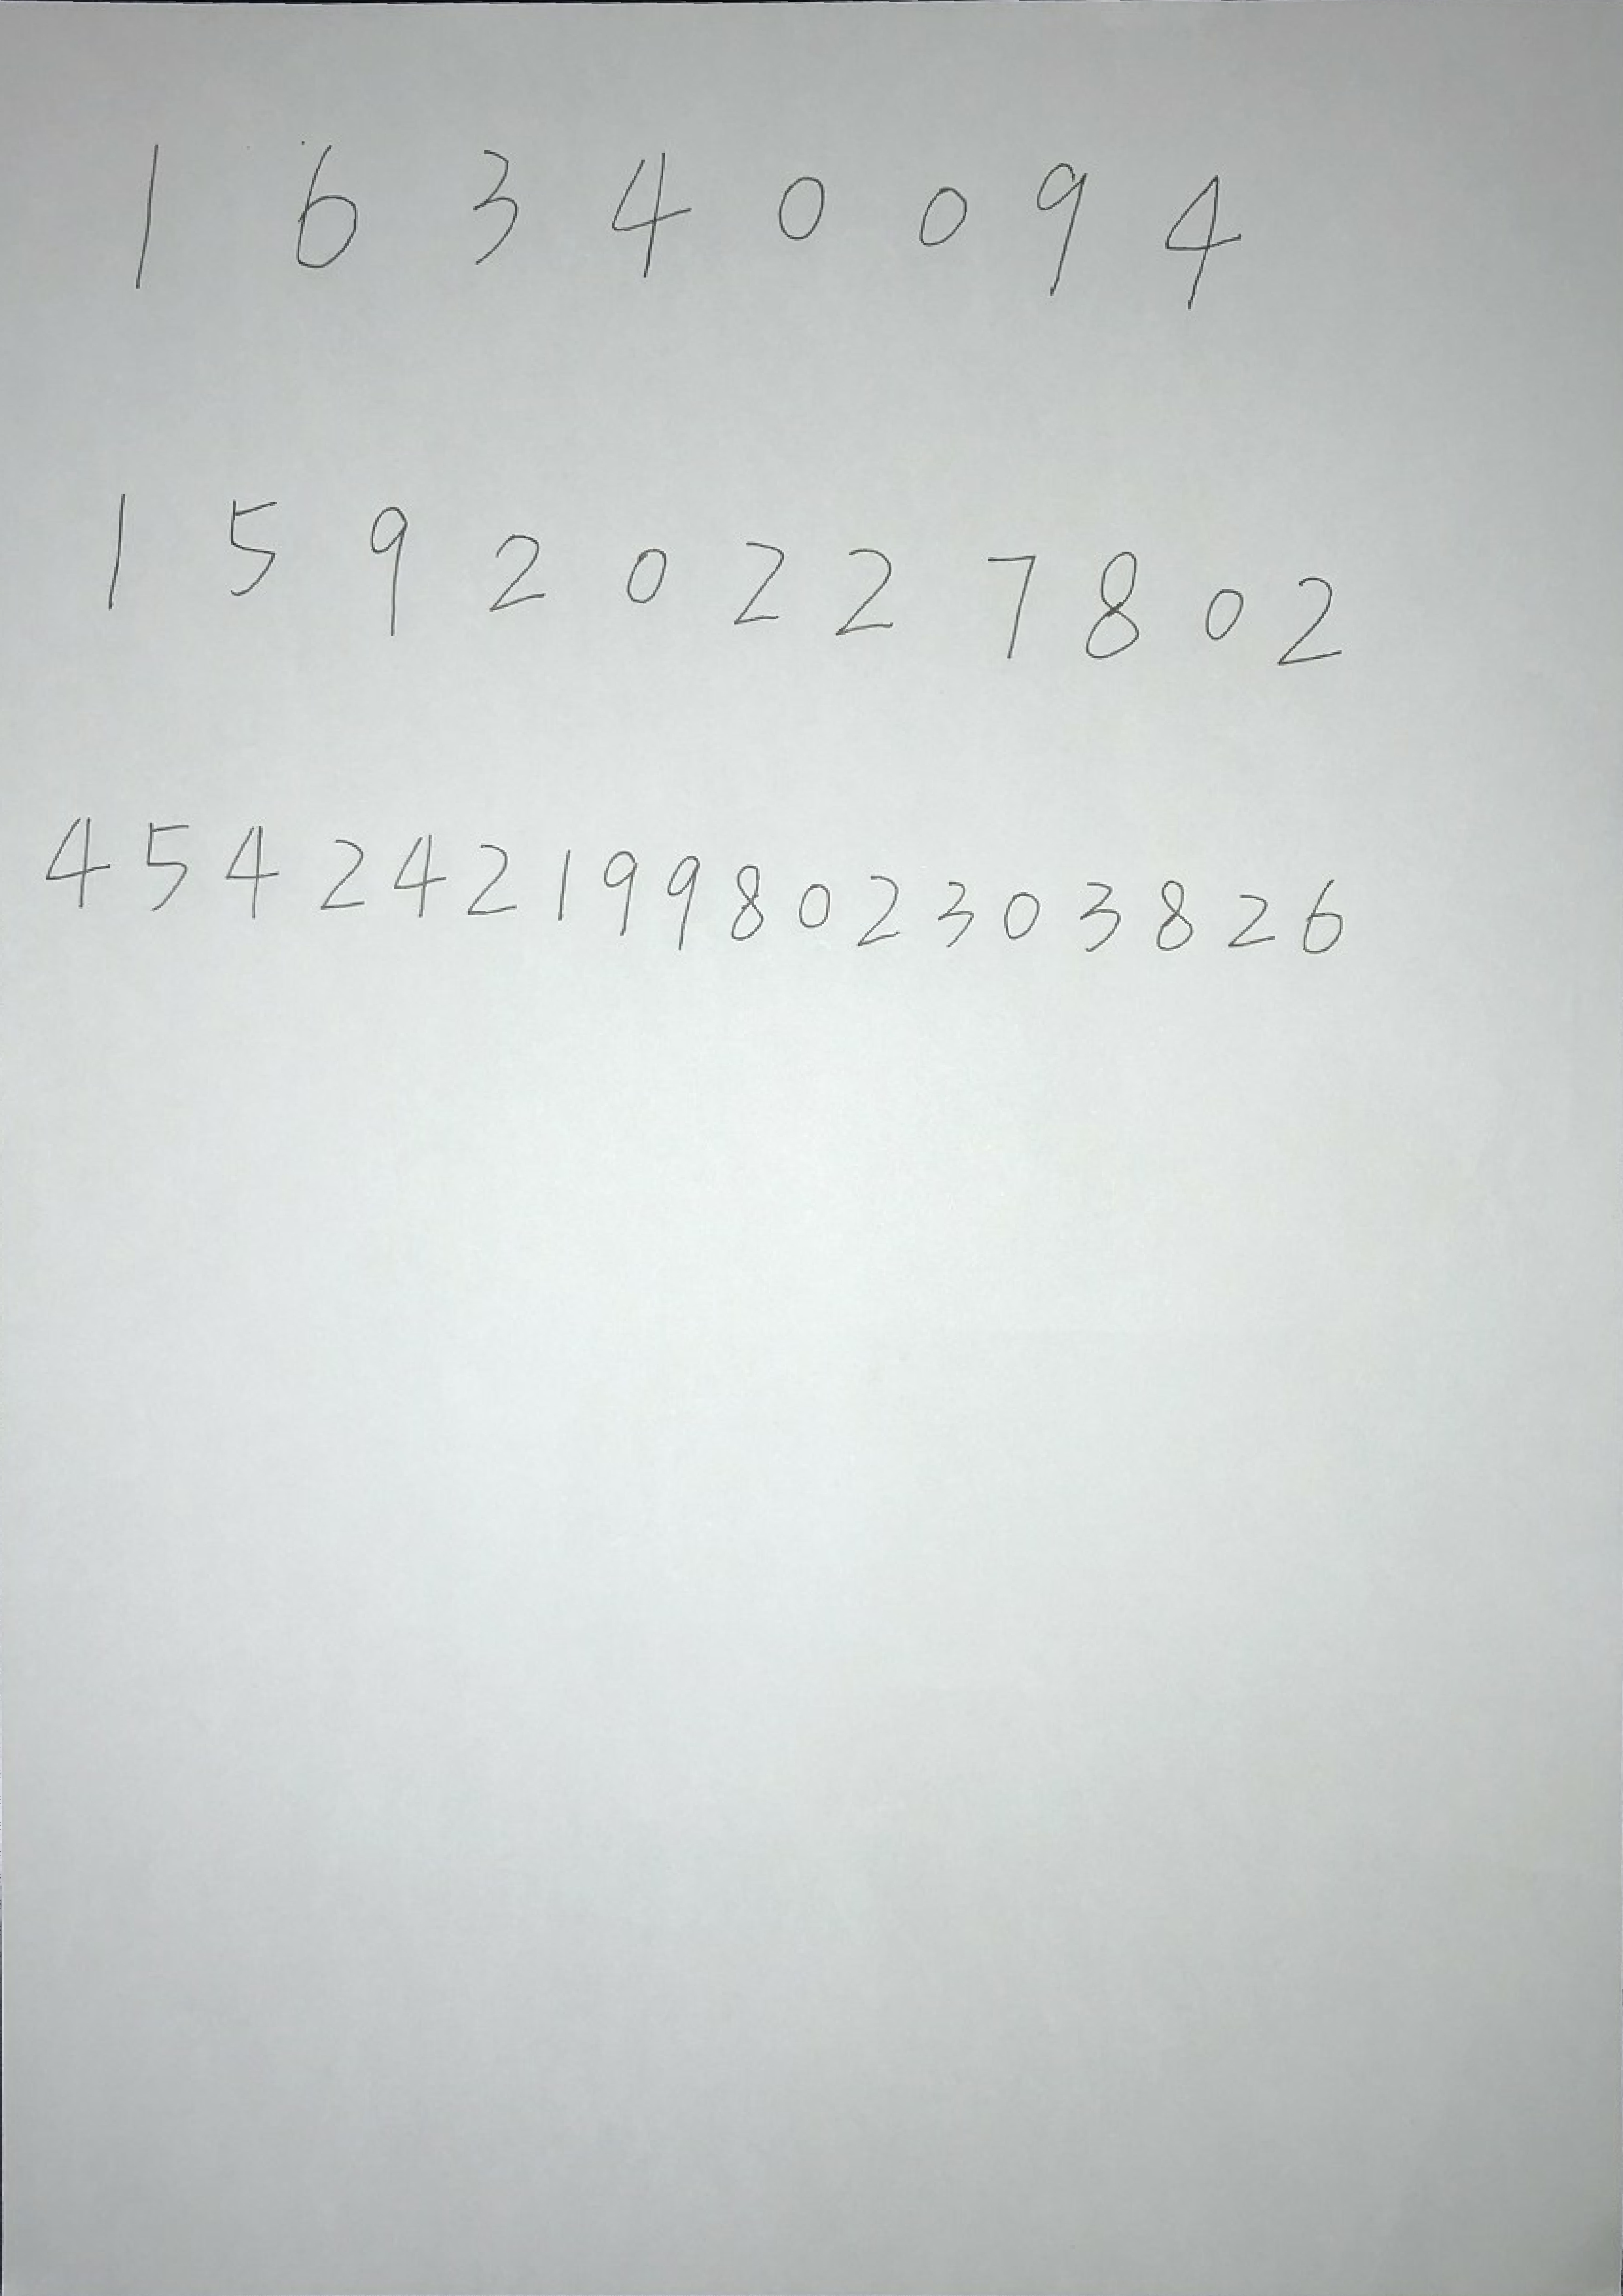 1 6 3 4 0 0 9 4
1 5 9 2 0 2 2 7 8 0 2
4 5 4 2 4 2 1 9 9 8 0 2 3 0 3 8 2 6